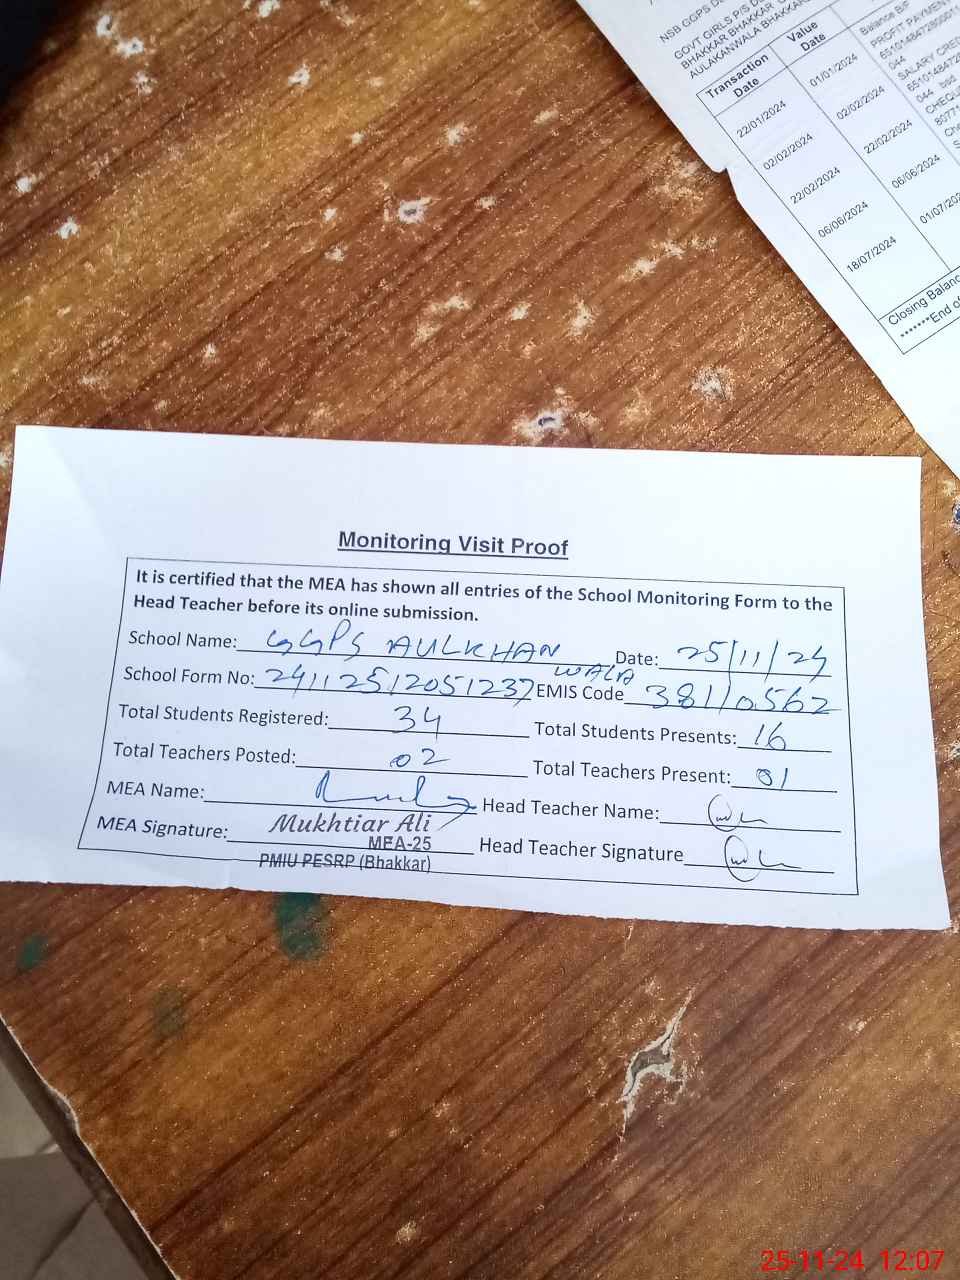 NSB GGPS
GOVT GIRLS P/S
BHAKKAR BHAKKAR
AULAKANWALA BHAKKAR
Transaction Date Value Date
Balance B/F
22/01/2024 01/01/2024 PROFIT PAYMENT
044
02/02/2024 02/02/2024 SALARY
044
22/02/2024 22/02/2024
06/06/2024 06/06/2024
18/07/2024
Closing
*******End
Monitoring Visit Proof
It is certified that the MEA has shown all entries of the School Monitoring Form to the
Head Teacher before its online submission.
School Name: GGPS AULKHAN WALA Date: 25/11/24
School Form No: 24112512051237 EMIS Code 38110562
Total Students Registered: 34 Total Students Presents: 16
Total Teachers Posted: 02 Total Teachers Present: 01
MEA Name: Head Teacher Name:
MEA Signature: Mukhtiar Ali Head Teacher Signature
MEA-25
PMIU PESRP (Bhakkar)
25-11-24 12:07